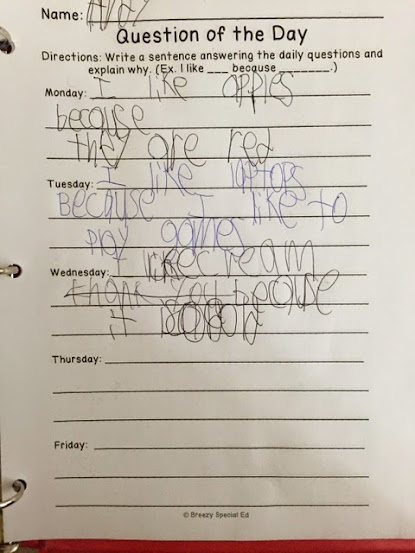 Name:
Question of the Day
Directions: Write a sentence answering the daily questions and
explain why. (Ex. I like ___ because _______.)
Monday: I like apples
because
they are red
Tuesday: I like laptops
Because I like to
play games
Wednesday: I like cream
thank you because
it
Thursday:
Friday:
© Breezy Special Ed